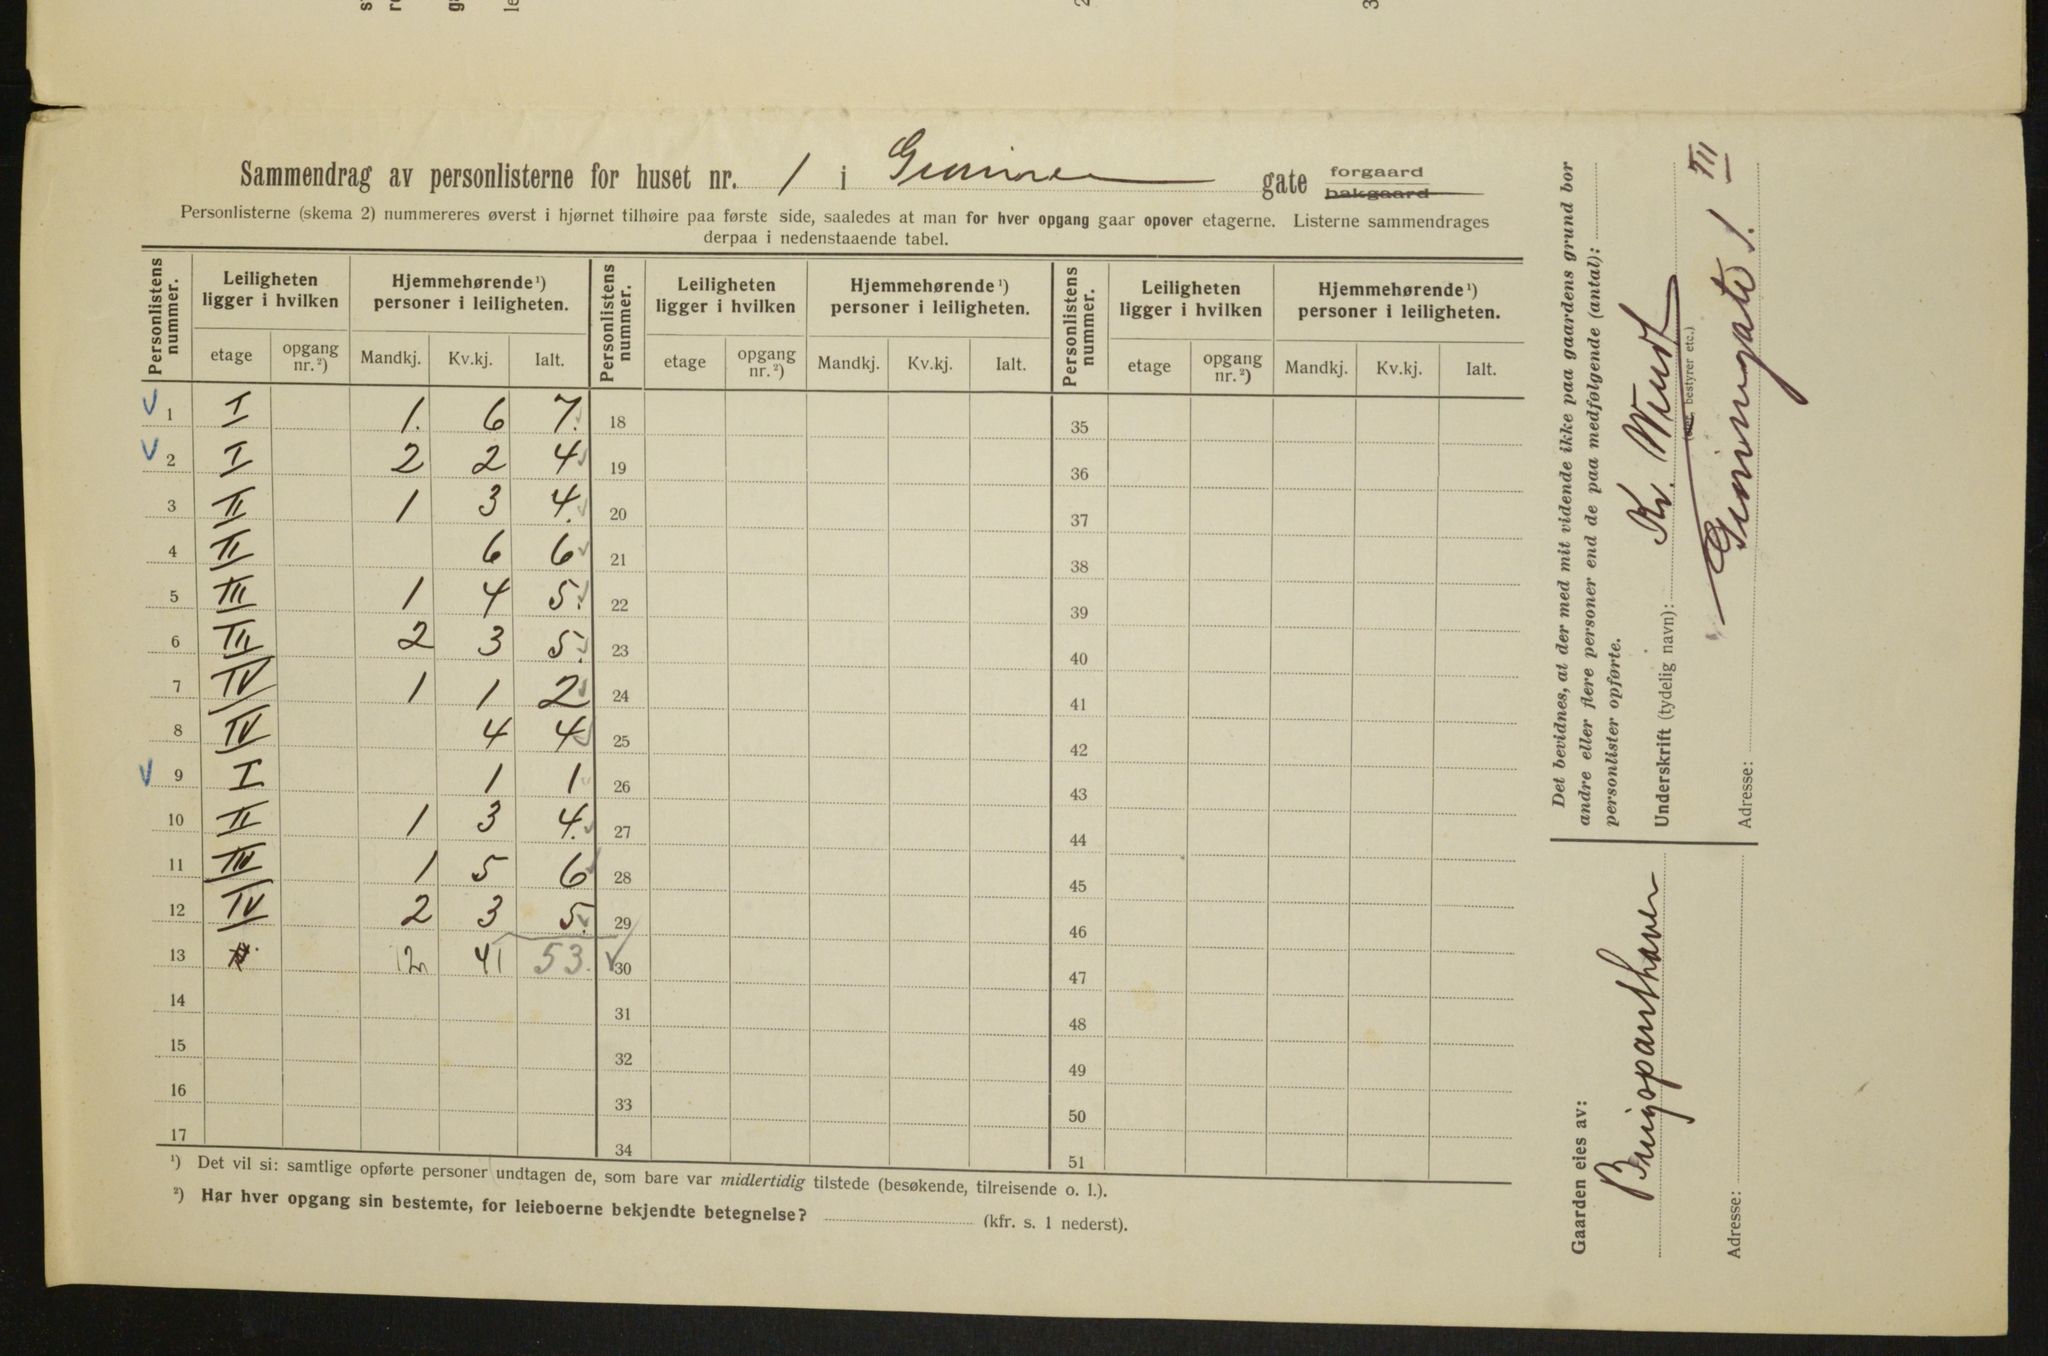 Sammendrag av personlisterne for huset nr. 1 i gate forgaard
bakgaard
Personlisterne (skema 2) nummereres øverst i hjørnet tilhøire paa første side, saaledes at man for hver opgang gaar opover etagerne. Listerne sammendrages
derpaa i nedenstaaende tabel.
Personlistens nummer. Leiligheten ligger i hvilken Hjemmehørende¹) personer i leiligheten. Personlistens nummer. Leiligheten ligger i hvilken Hjemmehørende¹) personer i leiligheten. Personlistens nummer. Leiligheten ligger i hvilken Hjemmehørende¹) personer i leiligheten.
etage opgang nr.²) Mandkj. Kv.kj. Ialt. etage opgang nr.²) Mandkj. Kv.kj. Ialt. etage opgang nr.²) Mandkj. Kv.kj. Ialt.
1 I 1. 6 7. 18 35
2 I 2 2 4 19 36
3 II 1 3 4. 20 37
4 II 6 6 21 38
5 III 1 4 5. 22 39
6 III 2 3 5. 23 40
7 IV 1 1 2 24 41
8 IV 4 4 25 42
9 I 1 1 26 43
10 II 1 3 4. 27 44
11 III 1 5 6 28 45
12 IV 2 3 5. 29 46
13 12 41 53. 30 47
14 31 48
15 32 49
16 33 50
17 34 51
¹) Det vil si: samtlige opførte personer undtagen de, som bare var midlertidig tilstede (besøkende, tilreisende o. l.).
²) Har hver opgang sin bestemte, for leieboerne bekjendte betegnelse? (kfr. s. 1 nederst).
Det bevidnes, at der med mit vidende ikke paa gaardens grund bor
andre eller flere personer end de paa medfølgende (antal):
personlister opførte.
Underskrift (tydelig navn): Kr.
(eier, bestyrer etc.)
Adresse: 1. III
Gaarden eies av:
Adresse: